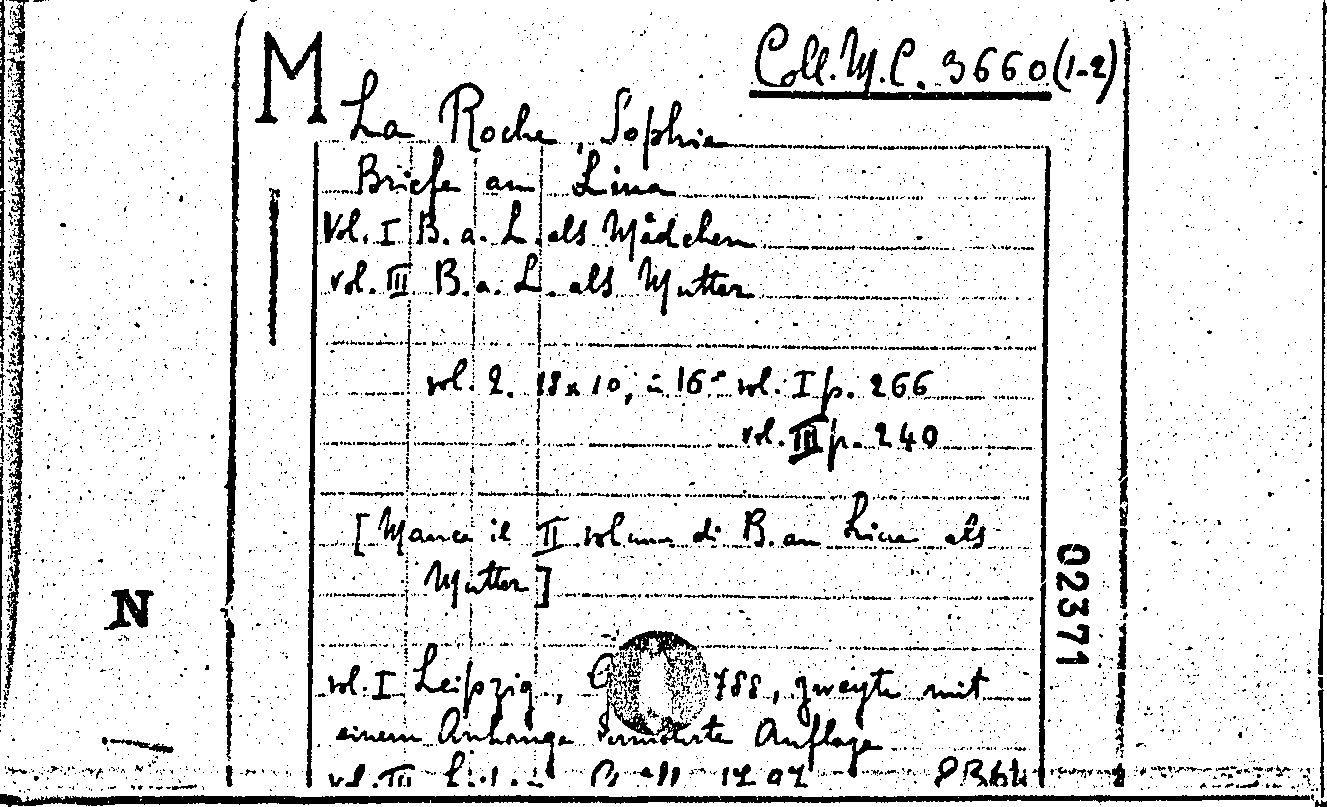 M
Coll. M. C. 3660 (1-2)
La Roche, Sophie
Briefe an Lina
Vol. I B. a. L. als Mädchen
vol. III B. a. L. als Mutter
vol. 2. 18x10, in 16° vol. I p. 266
vol. III p. 240
[Manca il II volume di B. an Lina als
Mutter]
02371
N
vol. I Leipzig, 788, zweyte mit
einem Anhange vermehrte Auflage
vol. III